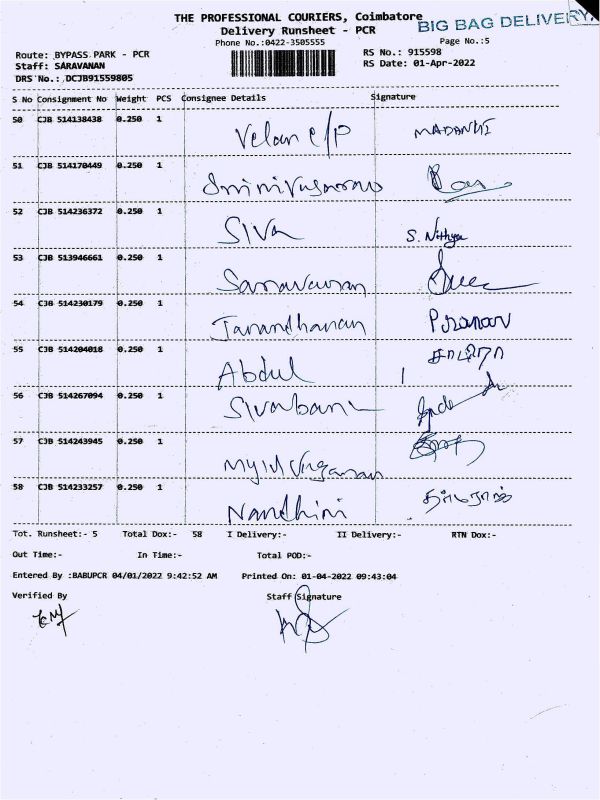 THE PROFESSIONAL COURIERS, Coimbatore
BIG BAG DELIVERY
Delivery Runsheet - PCR
Phone No.:0422-3505555
Page No.:5
Route: BYPASS PARK - PCR
RS No.: 915598
Staff: SARAVANAN
RS Date: 01-Apr-2022
DRS No.: DCJB91559805
S No Consignment No Weight PCS Consignee Details Signature
50 CJB 514138438 0.250 1 Velan e/p
51 CJB 514170449 0.250 1
52 CJB 514236372 0.250 1 SIVA S. Nithya
53 CJB 513946661 0.250 1 Saravanan
54 CJB 514230179 0.250 1 Janandhanan Pranav
55 CJB 514204018 0.250 1 Abdul
56 CJB 514267094 0.250 1
57 CJB 514243945 0.250 1
58 CJB 514233257 0.250 1 Nandhini
Tot. Runsheet:- 5 Total Dox:- 58 I Delivery:- II Delivery:- RTN Dox:-
Out Time:- In Time:- Total POD:-
Entered By :BABUPCR 04/01/2022 9:42:52 AM Printed On: 01-04-2022 09:43:04
Verified By Staff Signature